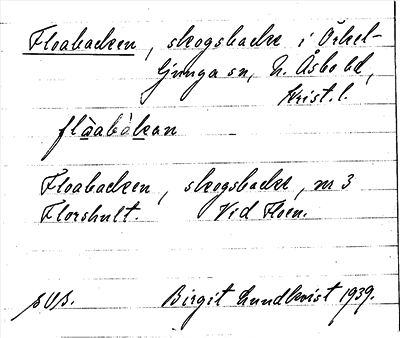 Floabacken, skogsbacke i Örkel-
ljunga sn, N. Åsbo hd,
Krist. l.
flàabàkan
Floabacken, skogsbacke, nr 3
Florshult. Vid Floen.
Birgit Lundkvist 1939.